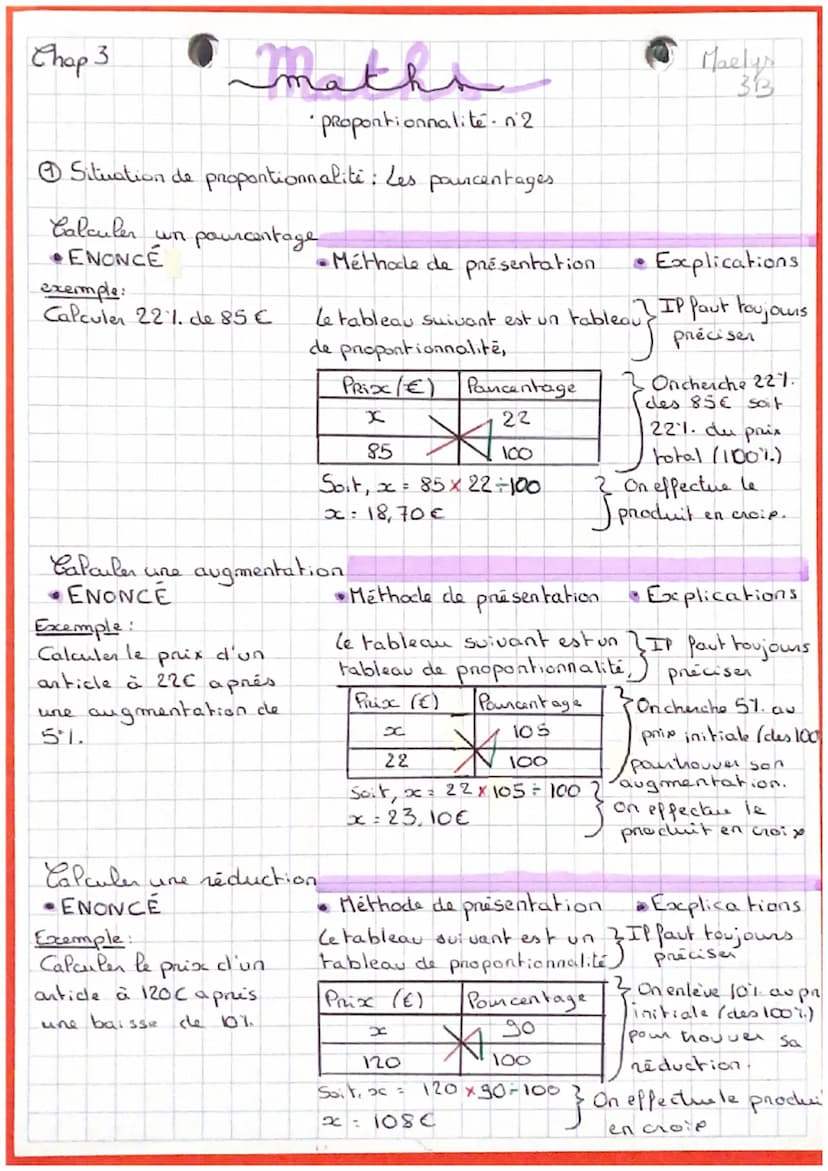 Chap 3
maths
Maelys
3B
• proportionnalité - n°2
① Situation de proportionnalité : Les pourcentages
Calculer un pourcentage
• ENONCÉ
• Méthode de présentation
• Explications
exemple:
Calculer 22% de 85 €
Le tableau suivant est un tableau
de proportionnalité,
Il faut toujours
préciser
Prix (€) Pourcentage
x 22
85 100
On cherche 22%
des 85€ soit
22% du prix
total (100%)
Soit, x = 85 × 22 ÷ 100
x = 18,70 €
On effectue le
produit en croix.
Calculer une augmentation
• ENONCÉ
• Méthode de présentation
• Explications
Exemple :
Calculer le prix d'un
article à 22€ aprés
une augmentation de
5%.
Le tableau suivant est un
tableau de proportionnalité,
Il faut toujours
préciser
Prix (€) Pourcentage
x 105
22 100
On cherche 5% au
prix initiale (des 100
pour trouver son
augmentation.
Soit, x = 22 × 105 ÷ 100
x = 23,10€
On effectue le
produit en croix
Calculer une réduction
• ENONCÉ
• Méthode de présentation
• Explications
Exemple :
Calculer le prix d'un
article à 120€ aprés
une baisse de 10%
Le tableau suivant est un
tableau de proportionnalité
Il faut toujours
préciser
Prix (€) Pourcentage
x 90
120 100
On enlève 10% au pri
initiale (des 100%)
pour trouver sa
réduction.
Soit, x = 120 × 90 ÷ 100
x = 108€
On effectue le produi
en croix